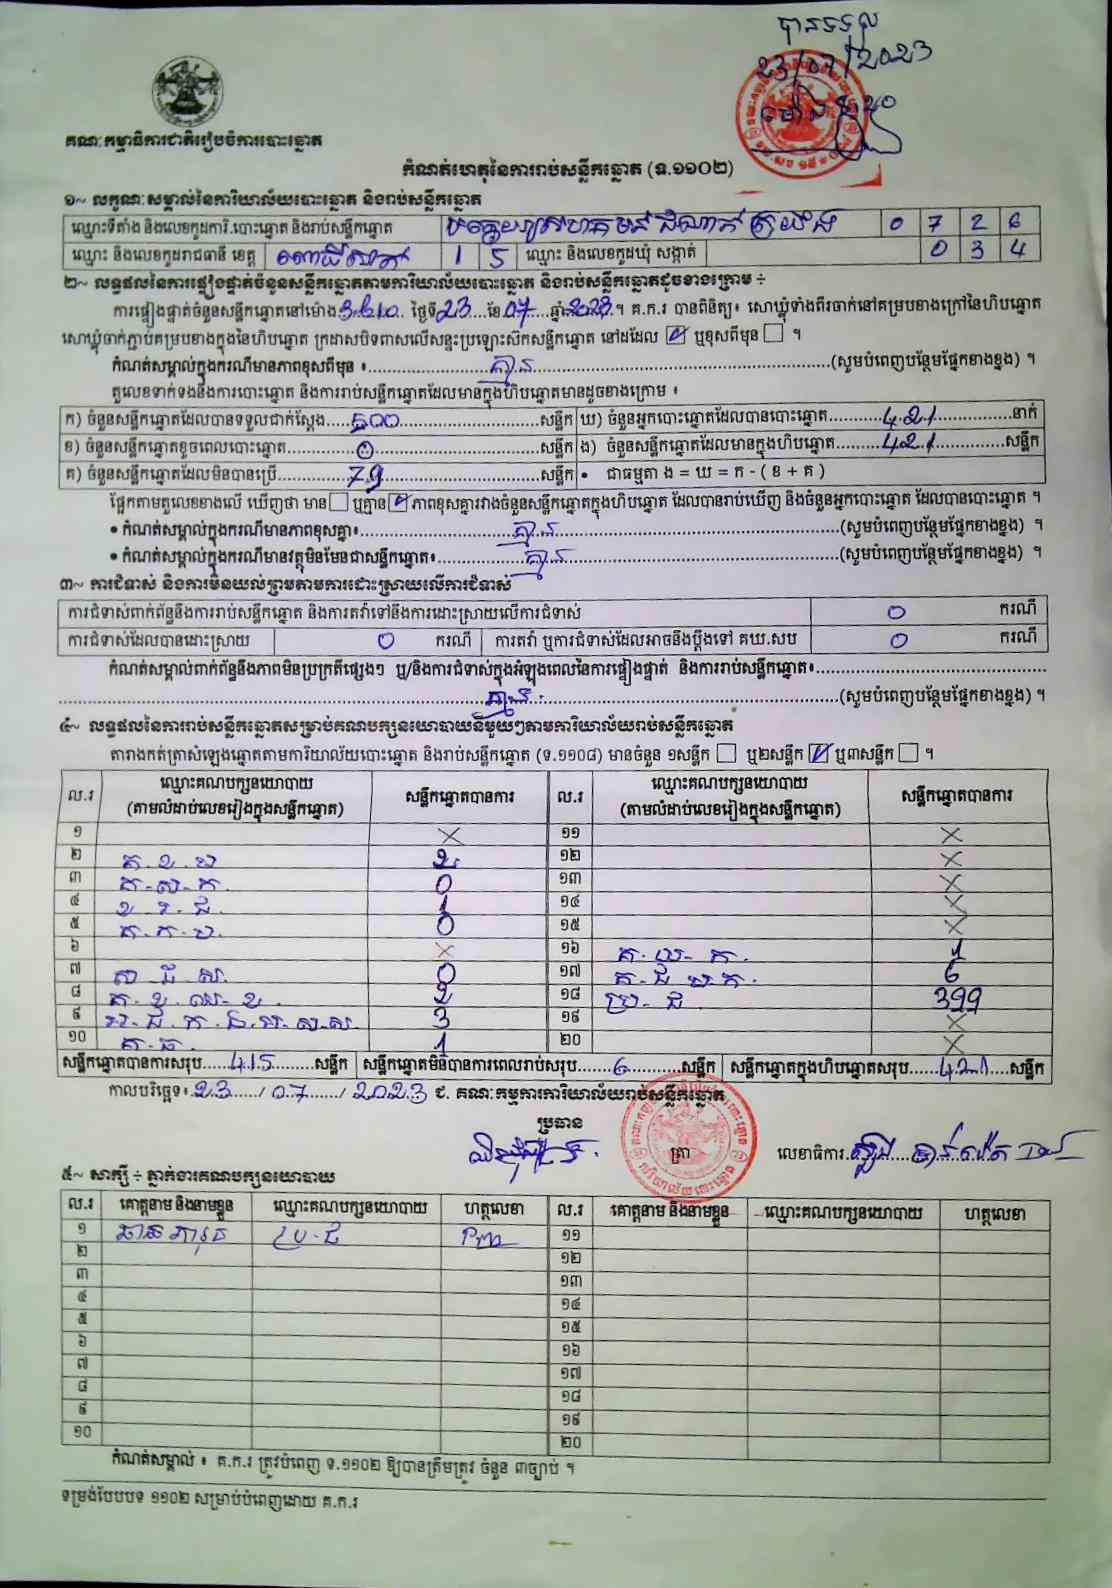 បានទទួល
23/07/2023
គណៈកម្មាធិការជាតិរៀបចំការបោះឆ្នោត
កំណត់ហេតុនៃការរាប់សន្លឹកឆ្នោត (ទ.១១០២)
១~ លក្ខណៈសម្គាល់នៃការិយាល័យបោះឆ្នោត និងរាប់សន្លឹកឆ្នោត
ឈ្មោះទីតាំង និងលេខកូដការិ.បោះឆ្នោត និងរាប់សន្លឹកឆ្នោត 0 7 2 6
ឈ្មោះ និងលេខកូដរាជធានី ខេត្ត ពោធិ៍សាត់ 1 5 ឈ្មោះ និងលេខកូដឃុំ សង្កាត់ 0 3 4
២~ លទ្ធផលនៃការផ្ទៀងផ្ទាត់ចំនួនសន្លឹកឆ្នោតតាមការិយាល័យបោះឆ្នោត និងរាប់សន្លឹកឆ្នោតដូចខាងក្រោម ÷
ការផ្ទៀងផ្ទាត់ចំនួនសន្លឹកឆ្នោតនៅម៉ោង ថ្ងៃទី23 ខែ 07 ឆ្នាំ2023 ។ គ.ក.រ បានពិនិត្យ៖ សោឃ្លុំទាំងពីរចាក់នៅគម្របខាងក្រៅនៃហិបឆ្នោត
សោឃ្លុំចាក់ភ្ជាប់គម្របខាងក្នុងនៃហិបឆ្នោត ក្រដាសបិទពាសលើសន្ទះប្រឡោះស៊កសន្លឹកឆ្នោត នៅដដែល ☑ ឬខុសពីមុន ☐ ។
កំណត់សម្គាល់ក្នុងករណីមានភាពខុសពីមុន ៖ គ្មាន (សូមបំពេញបន្ថែមផ្នែកខាងខ្នង) ។
តួលេខទាក់ទងនឹងការបោះឆ្នោត និងការរាប់សន្លឹកឆ្នោតដែលមានក្នុងហិបឆ្នោតមានដូចខាងក្រោម ៖
ក) ចំនួនសន្លឹកឆ្នោតដែលបានទទួលជាក់ស្តែង 500 សន្លឹក ឃ) ចំនួនអ្នកបោះឆ្នោតដែលបានបោះឆ្នោត 421 នាក់
ខ) ចំនួនសន្លឹកឆ្នោតខូចពេលបោះឆ្នោត 0 សន្លឹក ង) ចំនួនសន្លឹកឆ្នោតដែលមានក្នុងហិបឆ្នោត 421 សន្លឹក
គ) ចំនួនសន្លឹកឆ្នោតដែលមិនបានប្រើ 79 សន្លឹក • ជាធម្មតា ង = ឃ = ក - ( ខ + គ )
ផ្អែកតាមតួលេខខាងលើ ឃើញថា មាន ☐ ឬគ្មាន ☑ ភាពខុសគ្នារវាងចំនួនសន្លឹកឆ្នោតក្នុងហិបឆ្នោត ដែលបានរាប់ឃើញ និងចំនួនអ្នកបោះឆ្នោត ដែលបានបោះឆ្នោត ។
• កំណត់សម្គាល់ក្នុងករណីមានភាពខុសគ្នា៖ គ្មាន (សូមបំពេញបន្ថែមផ្នែកខាងខ្នង) ។
• កំណត់សម្គាល់ក្នុងករណីមានវត្ថុមិនមែនជាសន្លឹកឆ្នោត៖ គ្មាន (សូមបំពេញបន្ថែមផ្នែកខាងខ្នង) ។
៣~ ការជំទាស់ និងការមិនយល់ព្រមតាមការដោះស្រាយលើការជំទាស់
ការជំទាស់ពាក់ព័ន្ធនឹងការរាប់សន្លឹកឆ្នោត និងការតវ៉ាទៅនឹងការដោះស្រាយលើការជំទាស់ 0 ករណី
ការជំទាស់ដែលបានដោះស្រាយ 0 ករណី ការតវ៉ា ឬការជំទាស់ដែលអាចនឹងប្តឹងទៅ គឃ.សប 0 ករណី
កំណត់សម្គាល់ពាក់ព័ន្ធនឹងភាពមិនប្រក្រតីផ្សេងៗ ឬ/និងការជំទាស់ក្នុងអំឡុងពេលនៃការផ្ទៀងផ្ទាត់ និងការរាប់សន្លឹកឆ្នោត៖
គ្មាន (សូមបំពេញបន្ថែមផ្នែកខាងខ្នង) ។
៤~ លទ្ធផលនៃការរាប់សន្លឹកឆ្នោតសម្រាប់គណបក្សនយោបាយនីមួយៗតាមការិយាល័យរាប់សន្លឹកឆ្នោត
តារាងកត់ត្រាសំឡេងឆ្នោតតាមការិយាល័យបោះឆ្នោត និងរាប់សន្លឹកឆ្នោត (ទ.១១០៨) មានចំនួន ១សន្លឹក ☐ ឬ២សន្លឹក ☑ ឬ៣សន្លឹក ☐ ។
ល.រ ឈ្មោះគណបក្សនយោបាយ (តាមលំដាប់លេខរៀងក្នុងសន្លឹកឆ្នោត) សន្លឹកឆ្នោតបានការ ល.រ ឈ្មោះគណបក្សនយោបាយ (តាមលំដាប់លេខរៀងក្នុងសន្លឹកឆ្នោត) សន្លឹកឆ្នោតបានការ
១ X ១១ X
២ គ.ខ.ឃ 2 ១២ X
៣ គ.ស.ក. 0 ១៣ X
៤ ខ.រ.ជ. 1 ១៤ X
៥ គ.ក.ប. 0 ១៥ X
៦ X ១៦ គ.ល.ក. 1
៧ ស.ជ.ស. 0 ១៧ គ.ជ.ម.ក. 6
៨ 2 ១៨ ប្រ.ជ 399
៩ 3 ១៩ X
១០ គ.ធ. 1 ២០ X
សន្លឹកឆ្នោតបានការសរុប 415 សន្លឹក សន្លឹកឆ្នោតមិនបានការពេលរាប់សរុប 6 សន្លឹក សន្លឹកឆ្នោតក្នុងហិបឆ្នោតសរុប 421 សន្លឹក
កាលបរិច្ឆេទ៖ 23 / 07 / 2023 ជ. គណៈកម្មការការិយាល័យរាប់សន្លឹកឆ្នោត
ប្រធាន
ត្រា លេខាធិការ
៥~ សាក្សី ÷ ភ្នាក់ងារគណបក្សនយោបាយ
ល.រ គោត្តនាម និងនាមខ្លួន ឈ្មោះគណបក្សនយោបាយ ហត្ថលេខា ល.រ គោត្តនាម និងនាមខ្លួន ឈ្មោះគណបក្សនយោបាយ ហត្ថលេខា
១ ប្រ.ជ ១១
២ ១២
៣ ១៣
៤ ១៤
៥ ១៥
៦ ១៦
៧ ១៧
៨ ១៨
៩ ១៩
១០ ២០
កំណត់សម្គាល់ ៖ គ.ក.រ ត្រូវបំពេញ ទ.១១០២ ឱ្យបានត្រឹមត្រូវ ចំនួន ៣ច្បាប់ ។
ទម្រង់បែបបទ ១១០២ សម្រាប់បំពេញដោយ គ.ក.រ